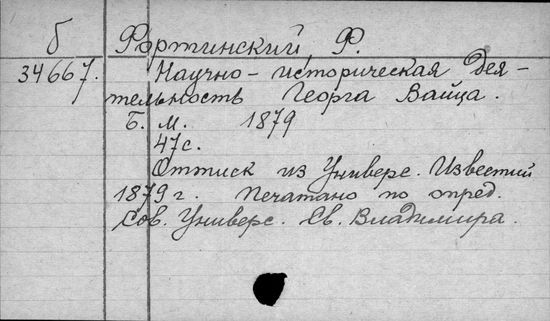 б Фортинский, Ф.
34667. Научно-историческая дея-
тельность Георга Вайца.
Б. м. 1879
47 с.
Оттиск из Универс. Известий
1879 г. Печатано по опред.
Сов. Универс. Св. Владимира.